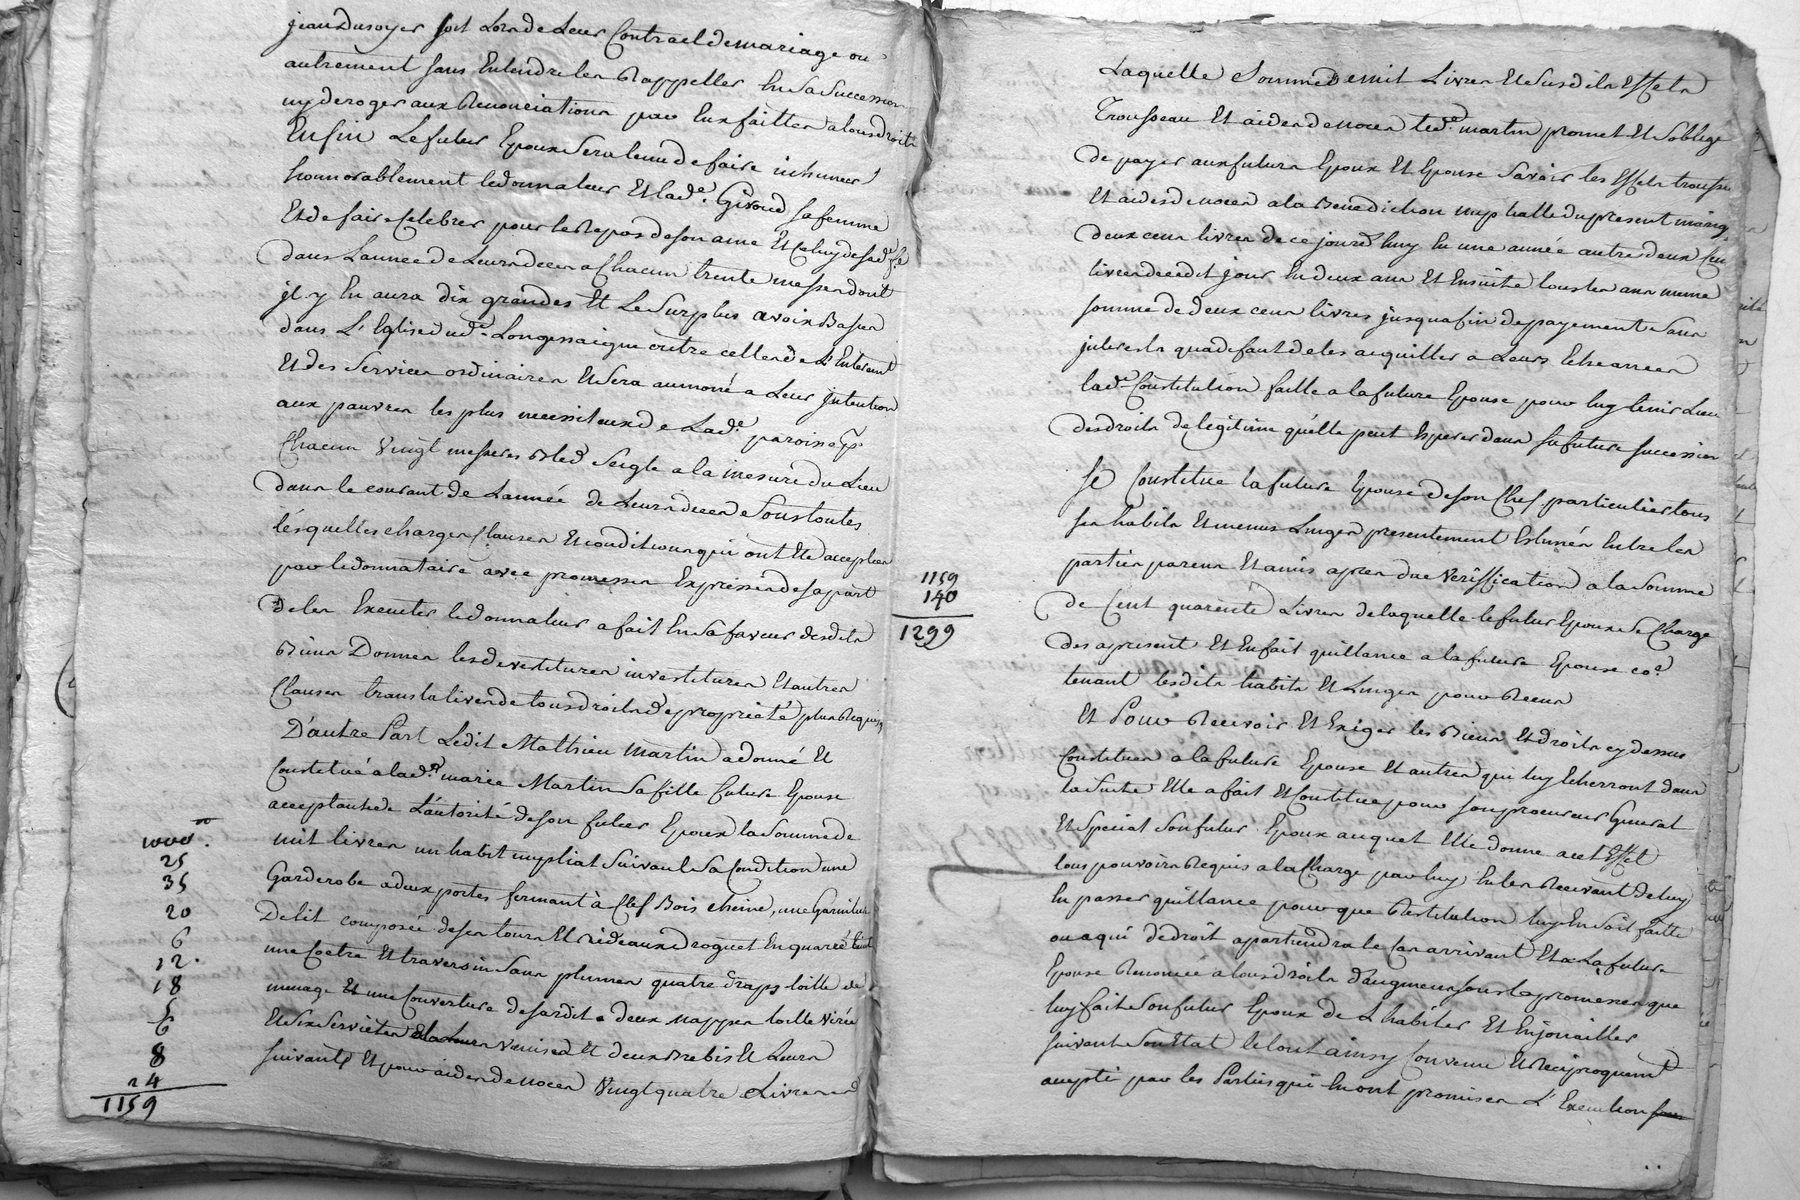 jean Dusoyer soit Lors de Leur Contract de mariage ou
autrement sans Entendre les Rappeller En sa Succession
ny deroger aux Renonciations par Eux faittes a tous droits
Enfin Le futur Epoux sera tenu de faire inhumer
honnorablement ledonnateur Et lad.e Giroud sa femme
Et de faire Celebrer pour le Repos de son ame Et Celuy de sad.e fe
dans Lannee de Leurs deces a Chacun trente messes dont
jl y En aura dix grandes Et Le Surplus a voix Basse
dans L'Eglise dud. Longessaigne outre celles de L'Enterem.t
Et des Services ordinaires Et sera aumoné a Leur jntention
aux pauvres les plus necessiteux de Lad.e paroisse p.
Chacun Vingt mesures Bled Seigle a la mesure du Lieu
dans le courant de Lannée de Leurs deces Sous toutes
lésquelles charges Clauses Et conditions qui ont Eté acceptées
par ledonnataire avec promesses Expresses de sa part
de les Executer ledonnateur a fait En sa faveur desdits
Biens Donnes les devestitures investitures Et autres
Clauses translatives de tous droits de proprieté plus Requises
D'autre Part Ledit Mathieu Martin a donné Et
Constitué a lad.e marie Martin sa fille future Epouse
acceptante de L'autorité de son futur Epoux la Somme de
mil livres un habit nuptial suivant sa Condition une
Garderobe a deux portes fermant à Clef Bois cheine, une Garniture
Delit composée de ses tours Et rideaux Droguet En quarré
une Coetre Et traversin sans plumes quatre draps toille de
menage Et une Couverture de sardit deux nappes toille
Et six Serviettes Venise Et deux Brebis Et Leurs
suivants Et pour aides de noces Vingt quatre Livres
1000.tt
25
35
20
6
12.
18
5
6
8
24
1159
Laquelle Somme de mil Livres Et susdits Effets
Trousseau Et aides de noces led. martin promet Et s'oblige
de payer aux futurs Epoux Et Epouse Savoir les Effets trousseau
Et aides de noces a la Benediction nuptialle du present mariag.
deux cens livres de ce jourd'huy En une année autre deux Cens
livres de cedit jour En deux ans Et Ensuite tous les ans meme
somme de deux cens livres jusqu'a fin de payement Sans
jnterests qu'a defaut de les acquitter a Leurs Echeances
lad.e Constitution faitte a la future Epouse pour luy tenir Lieu
des droits de legitime qu'elle peut Esperer dans sa future succession
Se Constitue la future Epouse de son Chef particulier tous
ses habits Et menus Linges presentement Estimés Entre les
parties parens Et amis apres due Verification a la Somme
de Cent quarente Livres de laquelle le futur Epoux se Charge
des apresent Et En fait quittance a la future Epouse co.e
tenant lesdits habits Et Linges pour Recus
Et Pour Recevoir Et Exiger les Biens Et droits cy dessus
Constitues a la future Epouse Et autres qui luy Echerront dans
la Suite Elle a fait Et Constitue pour son procureur General
Et Special son futur Epoux auquel Elle donne a cet Effet
tous pouvoirs Requis a la Charge par luy En les Recevant De luy
En passer quittance pour que Restitution luy En soit faitte
ou a qui de droit apartiendra le Cas arrivant Et a La future
Epouse Renoncé a tous droits d'augment sous les promesses que
luy fait son futur Epoux de L'habiller Et Enjoüailler
suivant son Etat le tout ainsy Convenu Et Reciproquem.t
accepté par les Parties qui En ont promis L'Execution
1159
140
1299